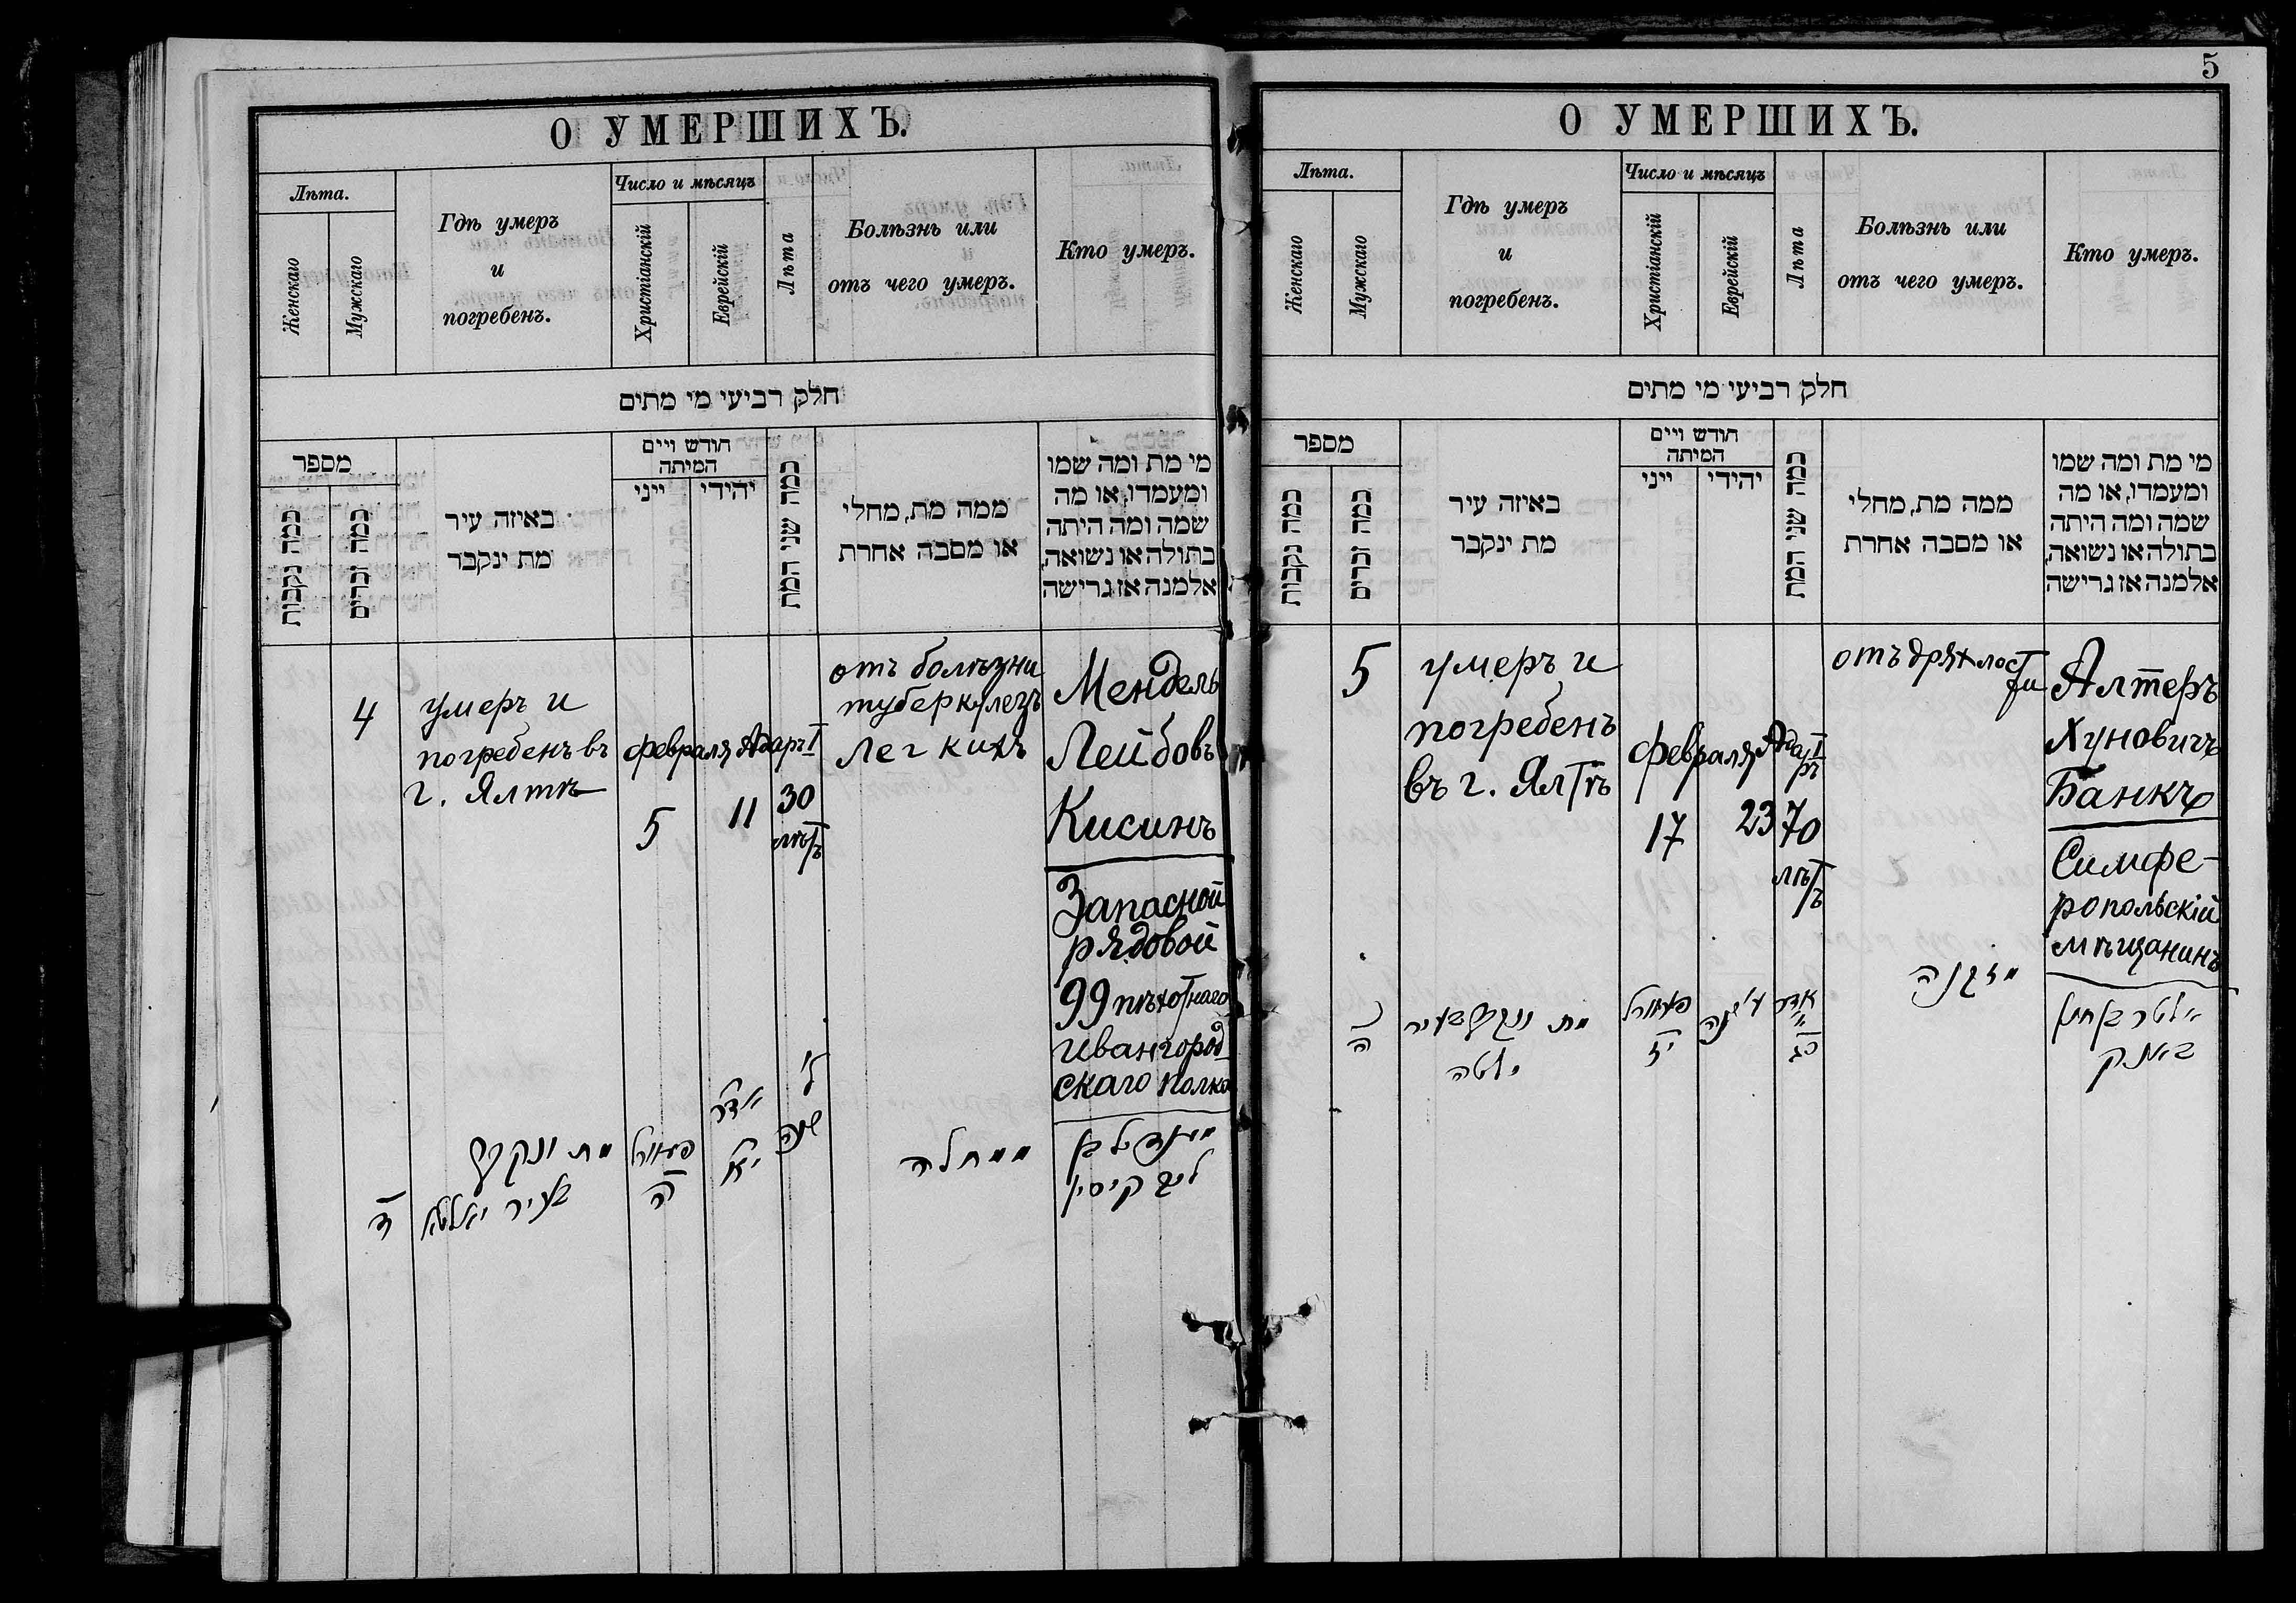 5
О УМЕРШИХЪ.
Лѣта.
Женскаго
Мужскаго
Гдѣ умеръ
и
погребенъ.
Число и мѣсяцъ
Христіанскій
Еврейскій
Лѣта
Болѣзнь или
отъ чего умеръ.
Кто умеръ.
חלק רביעי מי מתים
מספר
כמה נקבות
כמה זכרים
באיזה עיר
מת ינקבר
חודש ויים
המיתה
ייני
יהידי
כמה שני המת
ממה מת, מחלי
או מסבה אחרת
מי מת ומה שמו
ומעמדו, או מה
שמה ומה היתה
בתולה או נשואה,
אלמנה אז גרישה
4
умеръ и
погребенъ въ
г. Ялтѣ
февраля
5
Адаръ I
11
30
лѣтъ
отъ болѣзни
туберкулезъ
легкихъ
Мендель
Лейбовъ
Кисинъ
Запасной
рядовой
99 пѣхотнаго
Ивангород-
скаго полка
ד
מת ונקבר
בעיר יאלטא
פעוואר
ה
אדר
יא
ל
שנה
ממחלה
מענדיל בן
ליב קיסין
О УМЕРШИХЪ.
Лѣта.
Женскаго
Мужскаго
Гдѣ умеръ
и
погребенъ.
Число и мѣсяцъ
Христіанскій
Еврейскій
Лѣта
Болѣзнь или
отъ чего умеръ.
Кто умеръ.
חלק רביעי מי מתים
מספר
כמה נקבות
כמה זכרים
באיזה עיר
מת ינקבר
חודש ויים
המיתה
ייני
יהידי
כמה שני המת
ממה מת, מחלי
או מסבה אחרת
מי מת ומה שמו
ומעמדו, או מה
שמה ומה היתה
בתולה או נשואה,
אלמנה אז גרישה
5
умеръ и
погребенъ
въ г. Ялтѣ
февраля
17
Адаръ I
23
70
лѣтъ
отъ дряхлос
ти
Алтеръ
Хуновичъ
Банкъ
Симфе-
ропольскій
мѣщанинъ
ה
מת ונקבר בעיר
ילטה
יז
ע׳ שנה
אדר
א׳
כג
מזקנה
אלטר בן חונן
באנק